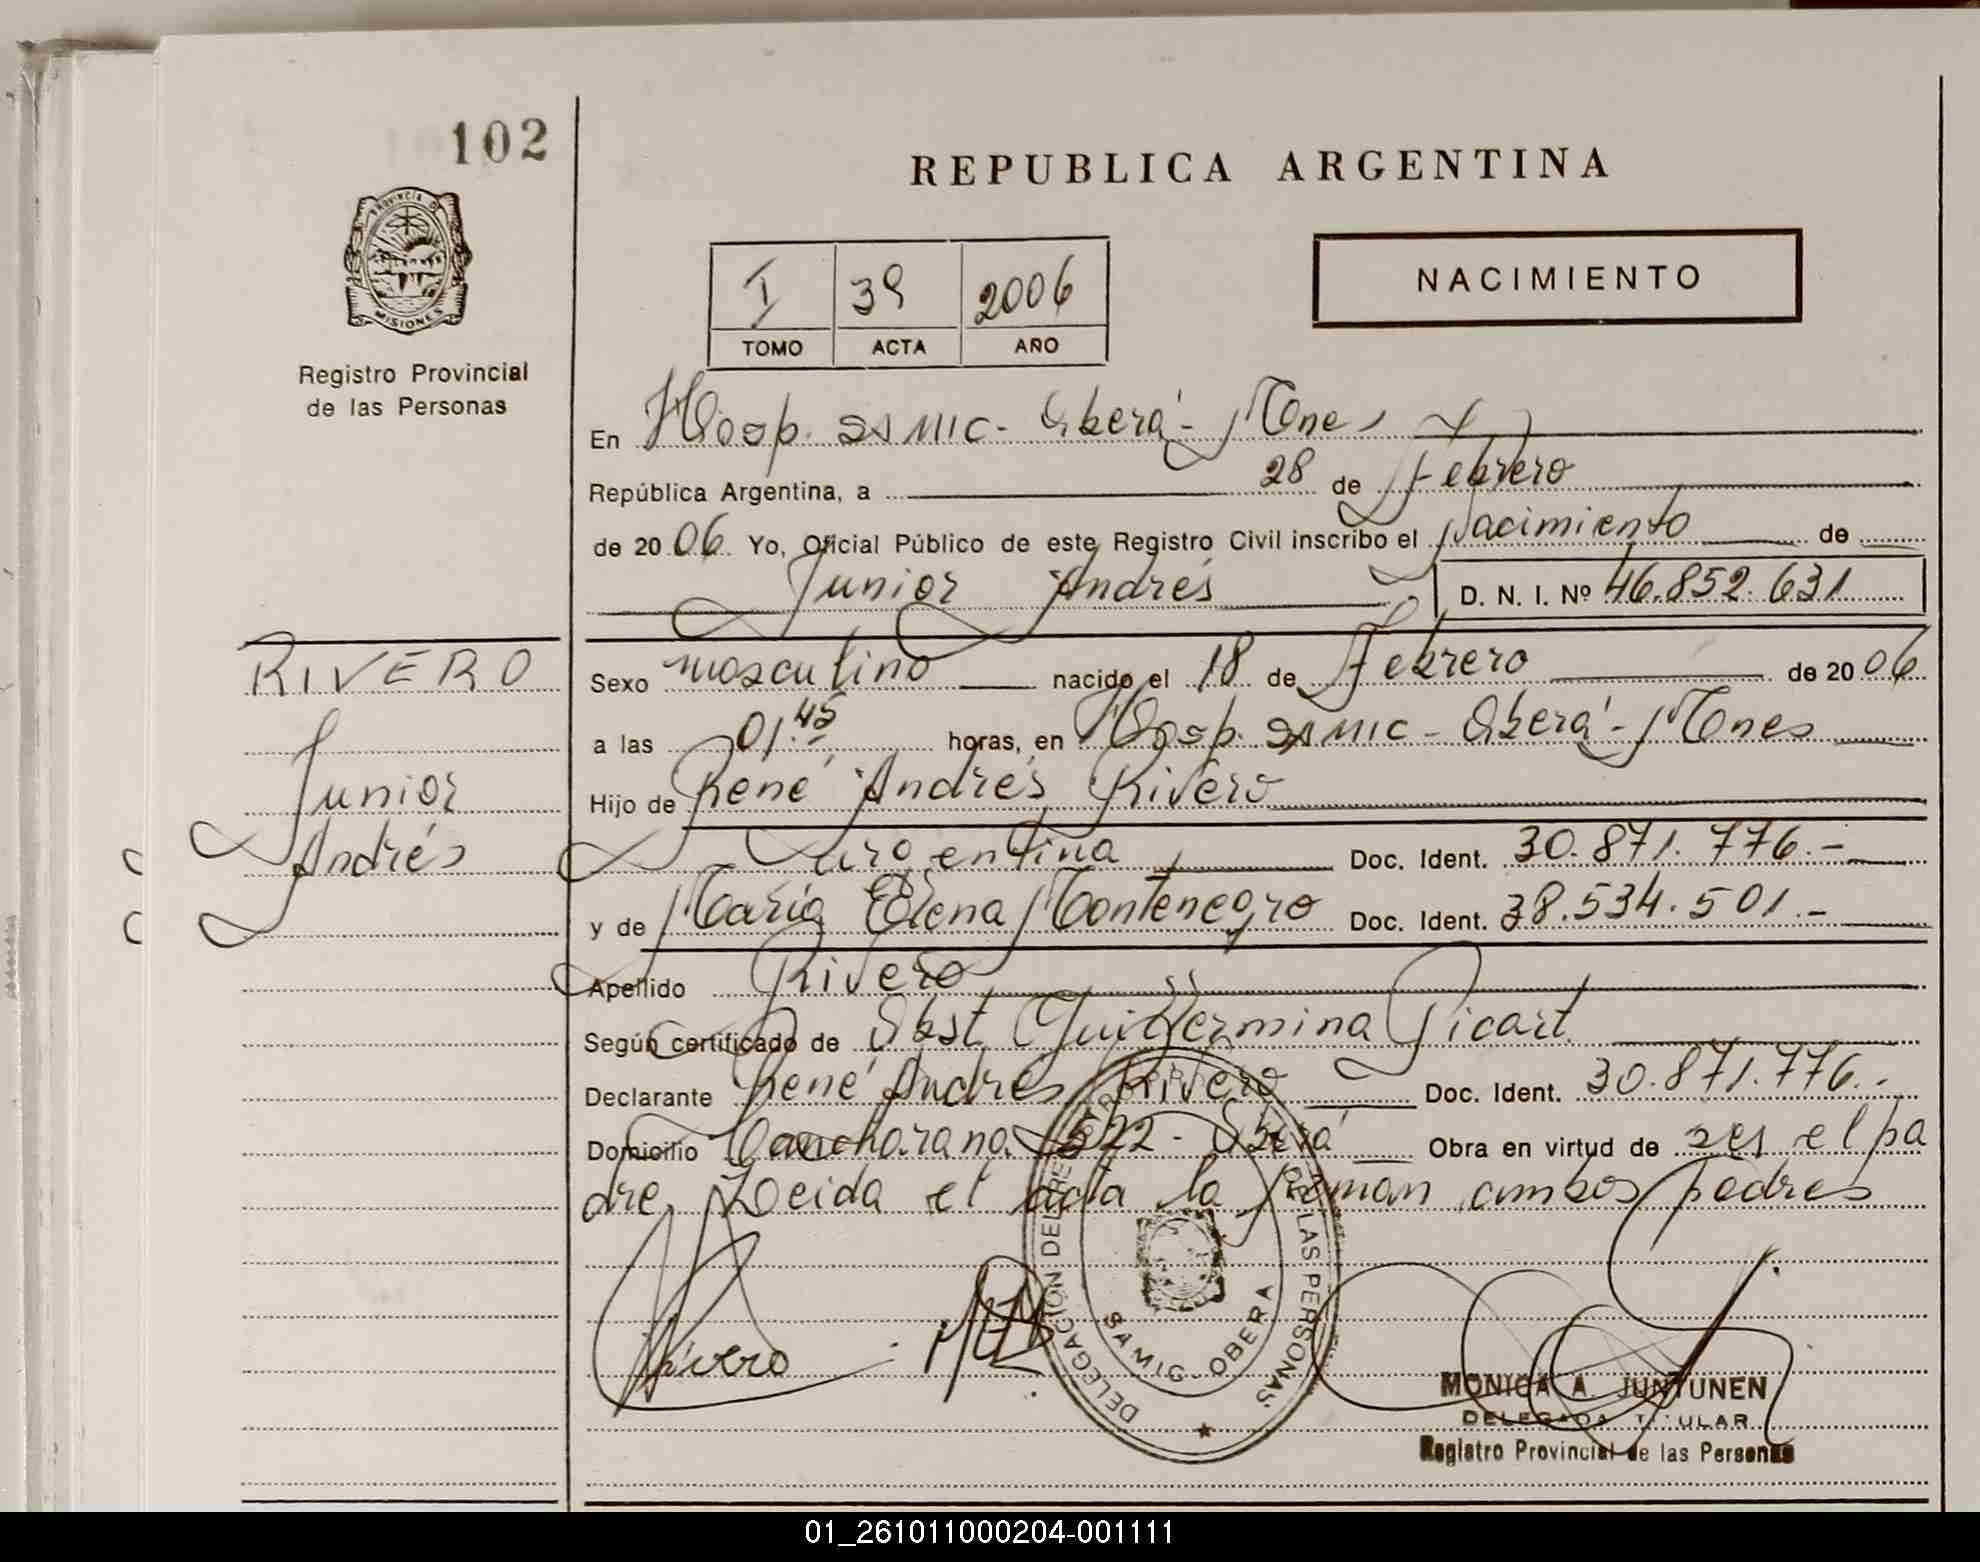 102
REPUBLICA ARGENTINA
PROVINCIA DE
MISIONES
Registro Provincial
de las Personas
I 39 2006
TOMO ACTA AÑO
NACIMIENTO
En Hosp. SAMIC - Oberá - Mnes
República Argentina, a 28 de Febrero
de 2006 Yo, Oficial Público de este Registro Civil inscribo el Nacimiento de
Junior Andrés D. N. I. Nº 46.852.631
RIVERO
Junior
Andrés
Sexo masculino nacido el 18 de Febrero de 2006
a las 01.45 horas, en Hosp. SAMIC - Oberá - Mnes
Hijo de René Andrés Rivero
argentina Doc. Ident. 30.871.776.-
y de María Elena Montenegro Doc. Ident. 38.534.501.-
Apellido Rivero
Según certificado de Obst. Guillermina Picart
Declarante René Andrés Rivero Doc. Ident. 30.871.776.-
Domicilio 522 - Oberá Obra en virtud de ser el pa
dre. Leida el acta la firman ambos padres
Rivero
DELEGACIÓN DEL REG DE LAS PERSONAS
SAMIC - OBERA
MONICA A. JUNTUNEN
DELEGADA TITULAR
Registro Provincial de las Personas
01_261011000204-001111